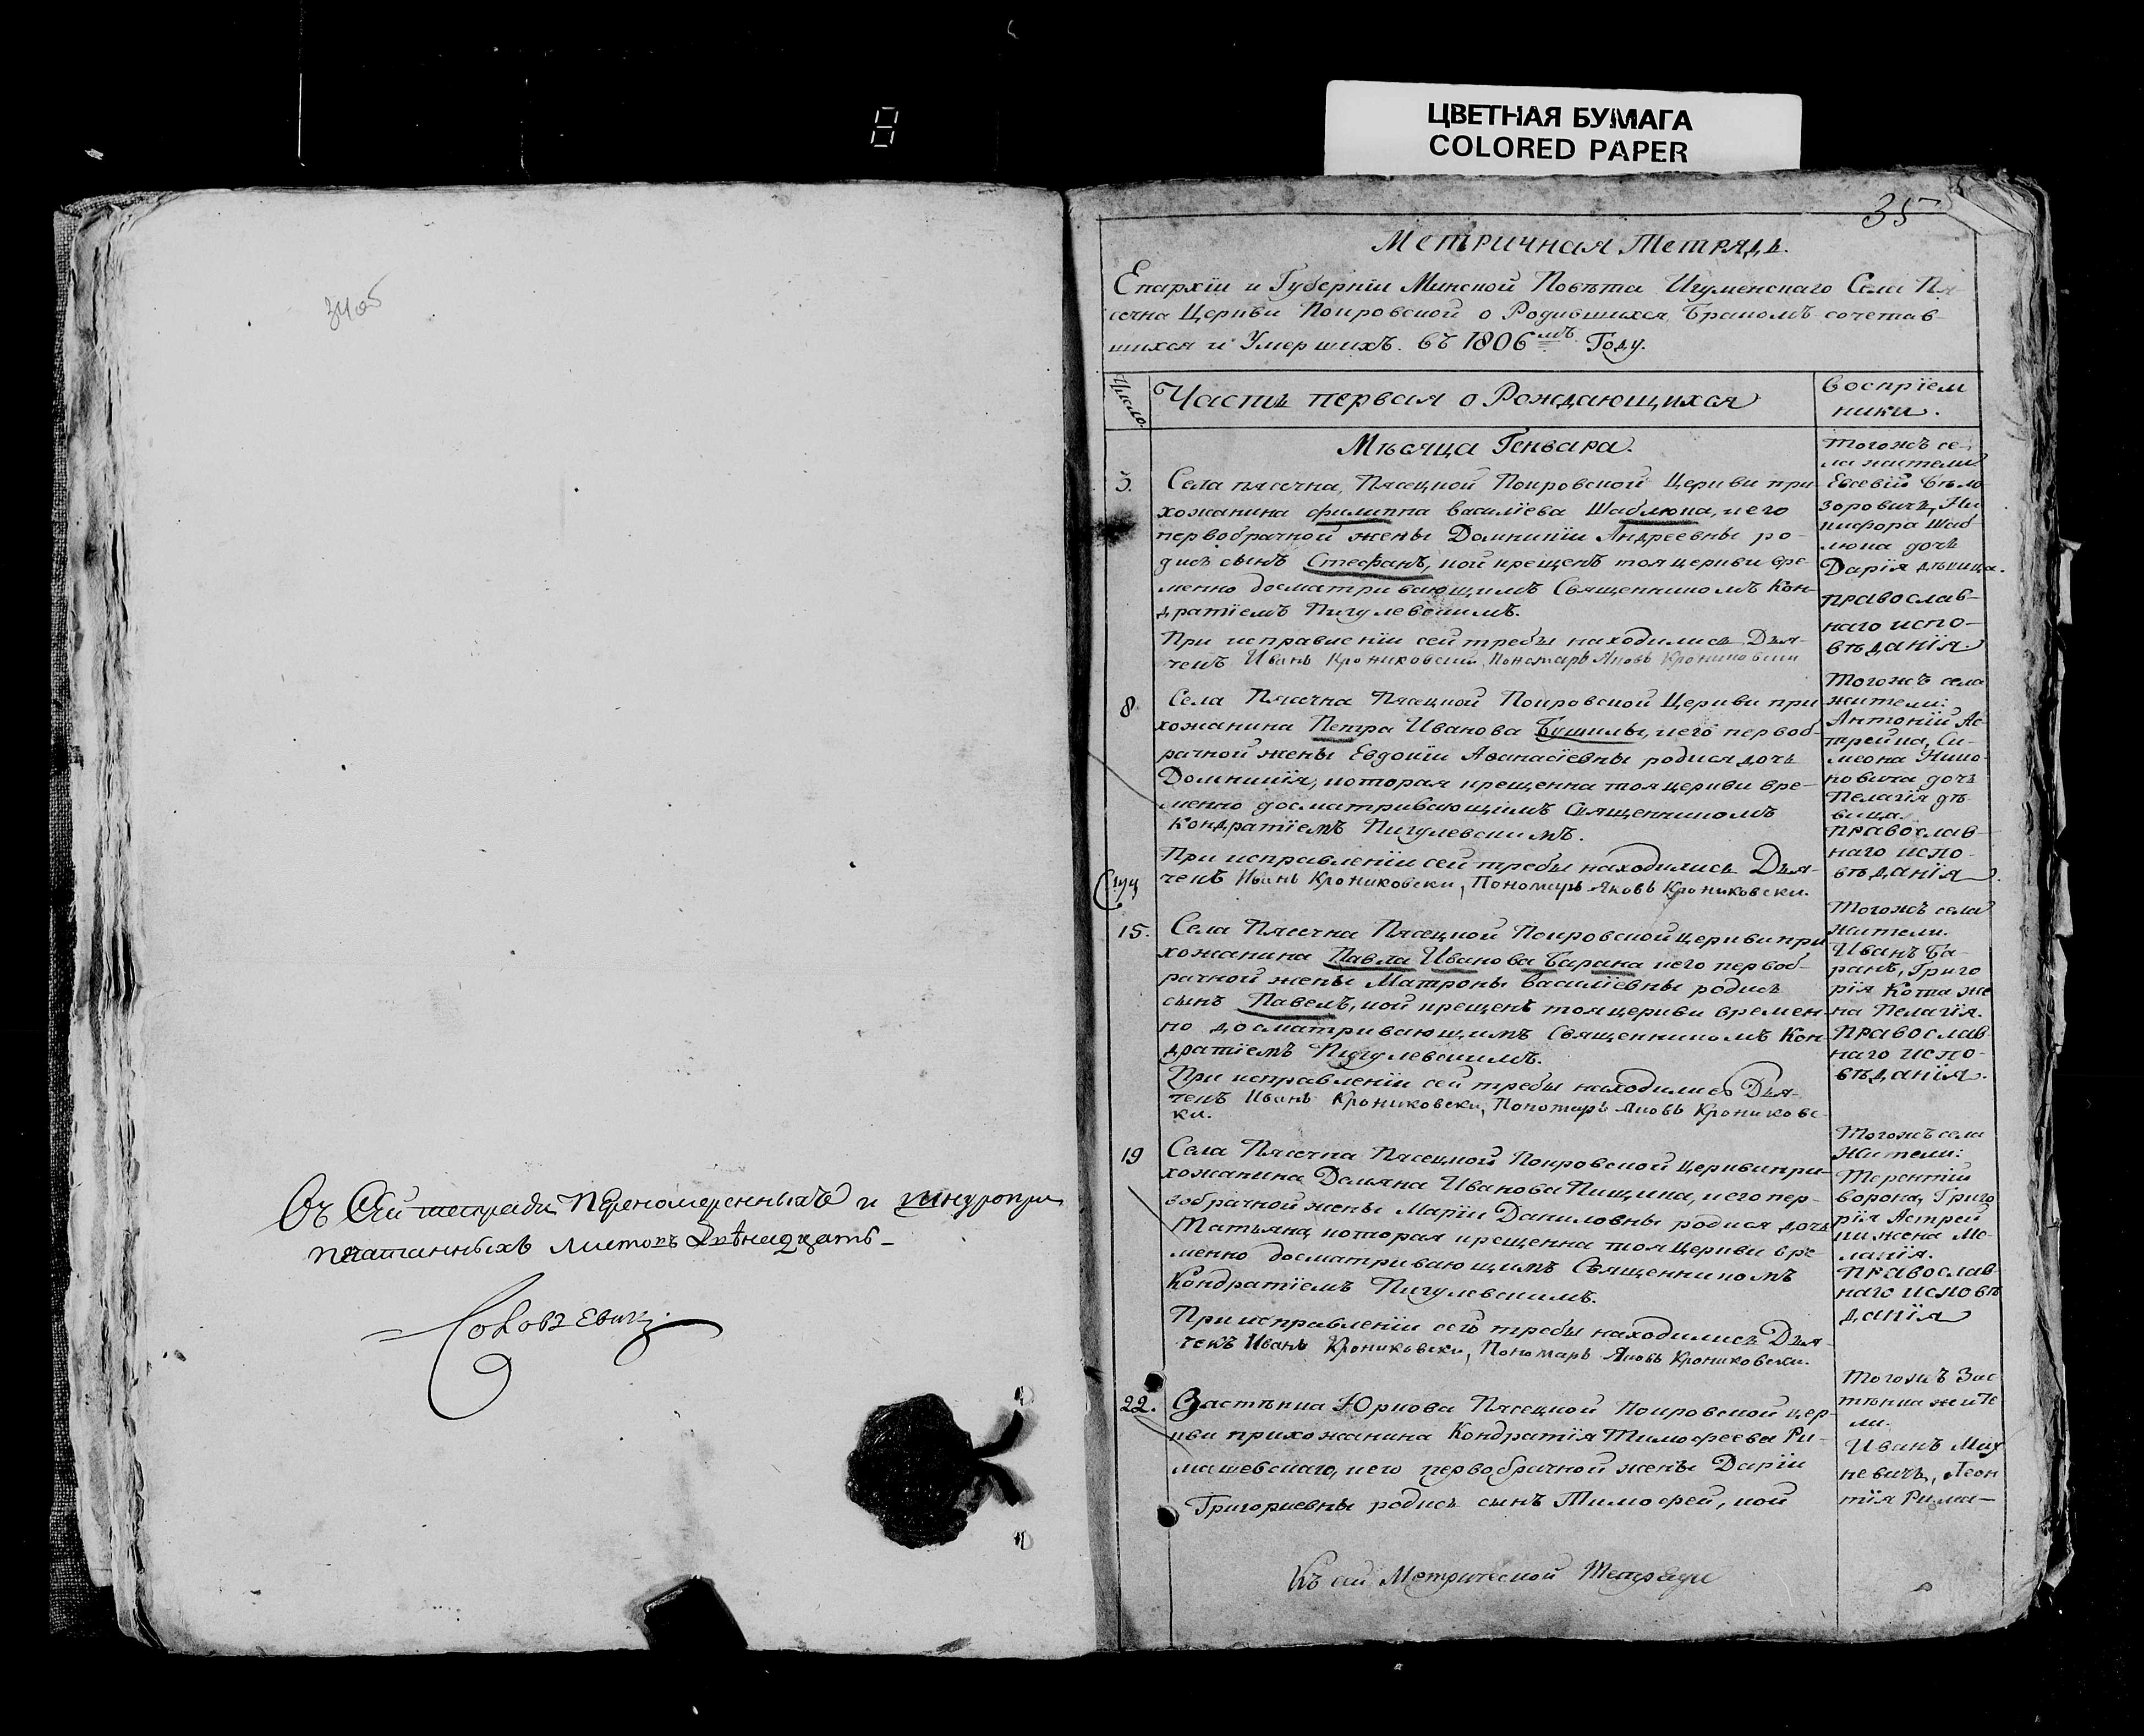 8
ЦВЕТНАЯ БУМАГА
COLORED PAPER
34об
Въ Сей тетради Прономеренныхъ и шнуропри
печатанныхъ листовъ двѣнадцать
35
Метричная Тетрядь.
Епархїи и Губернїи Минской Повѣта Игуменскаго Села Пя-
сечна Церкви Покровской о Родившихся, Бракомъ сочетав-
шихся и Умершихъ. въ 1806мъ Году.
Число.
Часть первая о Рождающихся
Воспрїем
ники.
Мѣсяца Генваря.
Села Пясечна, Пясецкой Покровской Церкви при
хожанина Филиппа Василїева Шаблюка, и его
первобрачной жены Домникїи Андреевны ро-
дися сынъ Стефанъ, кой крещенъ тоя церкви вре-
менно досматривающимъ Священникомъ Кон-
дратїемъ Пигулевскимъ.
При исправленїи сей требы находились Дья-
чекъ Иванъ Крониковски, Пономарь Яковъ Крониковски
Тогожъ се-
ла жители
Евсевїй Бѣло
зоровичъ, Ни
кифора Шаб
люка дочь
Дарїя дѣвица.
православ-
наго испо-
вѣданїя.
8
Села Пясечна Пясецкой Покровской Церкви при
хожанина Петра Иванова Бушилы, и его первоб-
рачной жены Евдокїи Афанасїевны родися дочь
Домникїя, которая крещенна тоя церкви вре-
менно досматривающимъ Священникомъ
Кондратїемъ Пигулевскимъ.
При исправленїи сей требы находились Дья-
чекъ Иванъ Крониковски, Пономарь Яковъ Крониковски.
Тогожъ села
жители:
Антонїй Ас-
трейка, Си-
меона Нико-
новича дочь
Пелагїя дѣ-
вица.
православ-
наго испо-
вѣданїя.
15.
Села Пясечна Пясецкой Покровской церкви при
хожанина Павла Иванова Барана и его первоб-
рачной жены Матроны Василїевны родись
сынъ Павелъ, кой крещенъ тоя церкви времен-
но досматривающимъ Священникомъ Кон-
дратїемъ Пигулевскимъ.
При исправленїи сей требы находились Дья-
чекъ Иванъ Крониковски, Пономарь Яковъ Крониковс-
ки.
Тогожъ села
жители.
Иванъ Ба-
ранъ, Григо
рїя Кота же
на Пелагїя.
православ-
наго испо-
вѣданїя.
19
Села Пясечна Пясецкой Покровской Церкви при-
хожанина Демяна Иванова Пищика, и его пер-
вобрачной жены Марїи Даниловны родися дочь
Татьяна, которая крещенна тоя Церкви вре-
менно досматривающимъ Священникомъ
Кондратїемъ Пигулевскимъ.
При исправленїи сей требы находились Дья-
чекъ Иванъ Крониковски, Пономарь Яковъ Крониковски.
Тогожъ села
Жители:
Терентїй
ворона, Григо
рїя Астрей
ки жена Ме-
ланїя.
православ-
наго исповѣ
данїя
22.
Застѣнка Юркова Пясецкой Покровской цер-
кви прихожанина Кондратїя Тимофеева Ри-
машевскаго, и его первобрачной жены Дарїи
Григориевны родись сынъ Тимофей, кой
Тогожъ Зас
тѣнка жите
ли.
Иванъ Мих
невичъ, Леон
тїя Рима-
Къ сей Метрической Тетради